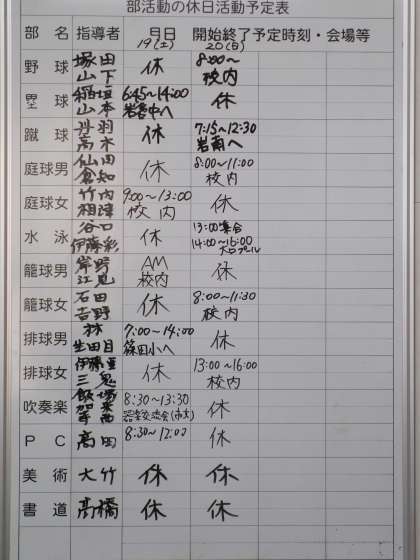 部活動の休日活動予定表
部名 指導者 月日 開始終了予定時刻・会場等
19(土) 20(日)
野球 塚田 山下 休 8:00～ 校内
塁球 稲垣 山本 6:45～14:00 岩倉中へ 休
蹴球 丹羽 高木 休 7:15～12:30 岩南へ
庭球男 仙田 倉知 休 8:00～11:00 校内
庭球女 竹内 相津 9:00～13:00 校内 休
水泳 谷口 伊藤彩 休 13:00集合 14:00～16:00 大口プール
籠球男 岸野 江見 AM 校内 休
籠球女 石田 吉野 休 8:00～11:30 校内
排球男 林 生田目 7:00～14:00 篠田小へ 休
排球女 伊藤 三鬼 休 13:00～16:00 校内
吹奏楽 飯場 8:30～13:30 器楽交流会 休
PC 高田 8:30～12:00 休
美術 大竹 休 休
書道 高橋 休 休